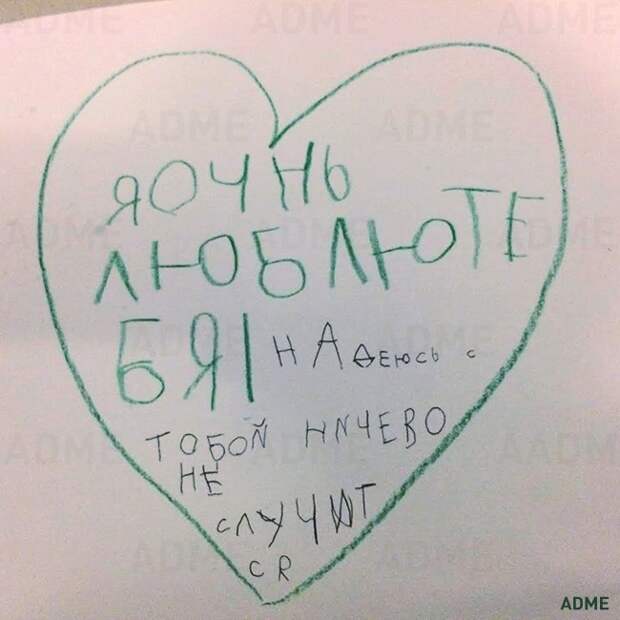 ЯОЧНЬ
ЛЮБЛЮТЕ
БЯ! НАДЕЮСЬ С
ТОБОЙ НИЧЕВО
НЕ
СЛУЧИТ
СR
ADME